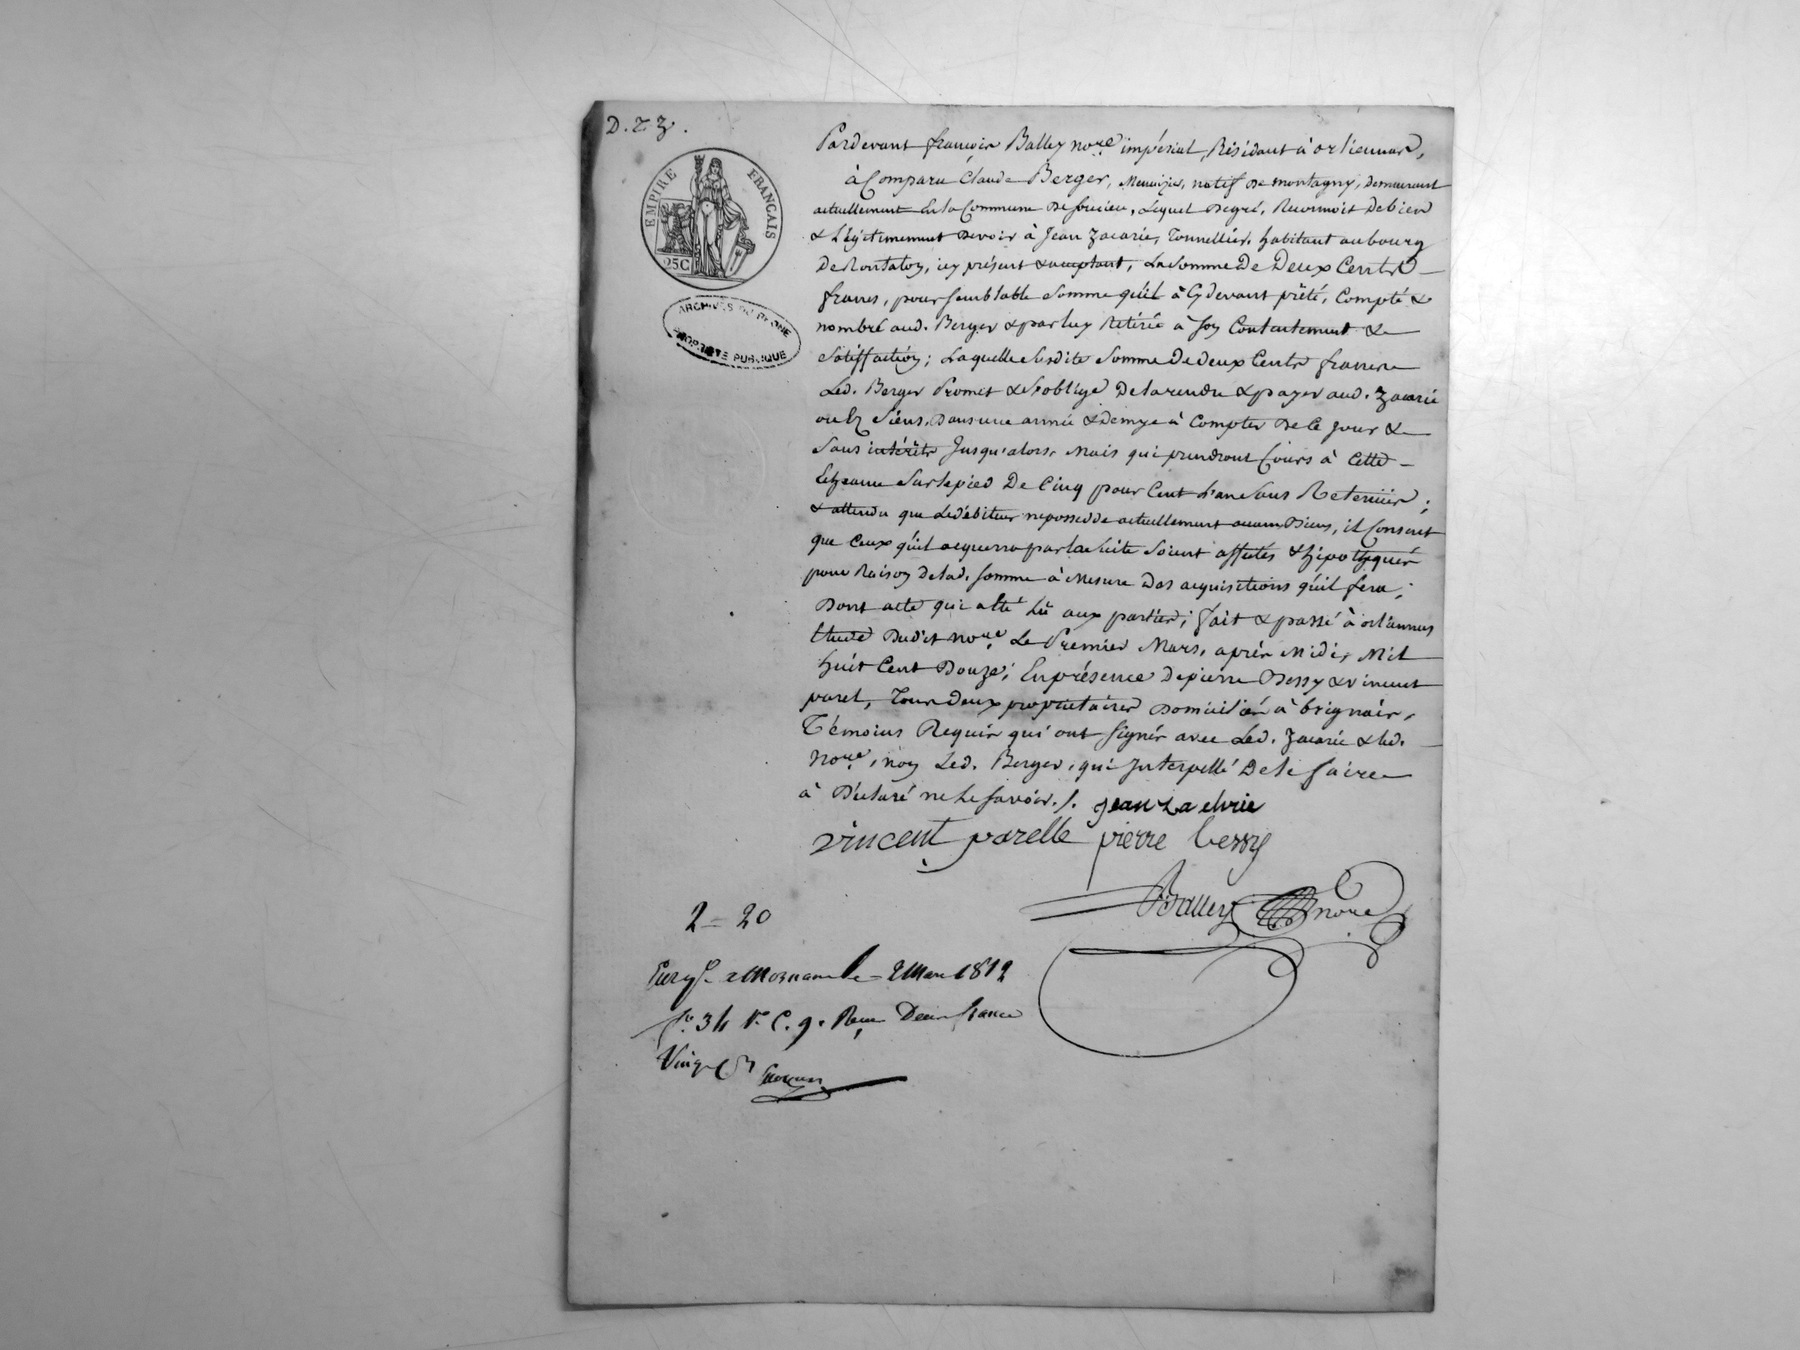 D. z. z.
EMPIRE FRANÇAIS
25C
ARCHIVES DU RHONE
PROPRIÉTÉ PUBLIQUE
Pardevant françois Balley nore. impérial, Résidant à orliennas,
à Comparu Claude Berger, Menuizier, natif de montagny, demeurant
actuellement En la Commune de soucieu, Lequel De gré, Reconnoit de bien
& Légitimement devoir à Jean Zacarie, Tonnellier, habitant au bourg
De Rontalon, icy présent & acceptant, La Somme De Deux Cents
francs, pour semblable Somme qu'il à Cydevant prêté, Compté &
nombré aud. Berger & par luy Retirée à son Contentement &
Satisfaction; Laquelle Susdite Somme de deux Cents francs
Led. Berger Promet & s'oblige De la rendre & payer aud. Zacarie
ou Ez Siens, Dans une année & demye à Compter De Ce Jour &
Sans intérêts Jusqu'alors, Mais qui prendront Cours à Cette
Echeance Sur le pied De Cinq pour Cent L'an Sans Retenüe;
& attendu que Le débiteur ne possede actuellement aucuns Biens, il Consent
que Ceux qu'il acquerra par la Suite Soient affectés & hipothequés
pour Raison de lad. somme à Mesure Des acquisitions qu'il fera;
Dont acte qui a été Lû aux parties; fait & passé à orliennas
Etude Dudit nore. Le Premier Mars, après Midi, Mil
huit Cent Douze; En présence De pierre Bessy & vincent
parel, Tous Deux propriétaires Domiciliés à brignais,
Témoins Requis qui ont signés avec Led. Zacarie & led.
nore., non Led. Berger, qui Interpellé De le faire
à Déclaré ne Le savoir./. jean za charie
vincent parelle pierre bessy
Balley nore
2 = 20
Enregé. a Mornant le 2 Mars 1812
fo. 34 Vo. C. 9. Reçu Deux francs
Vingt